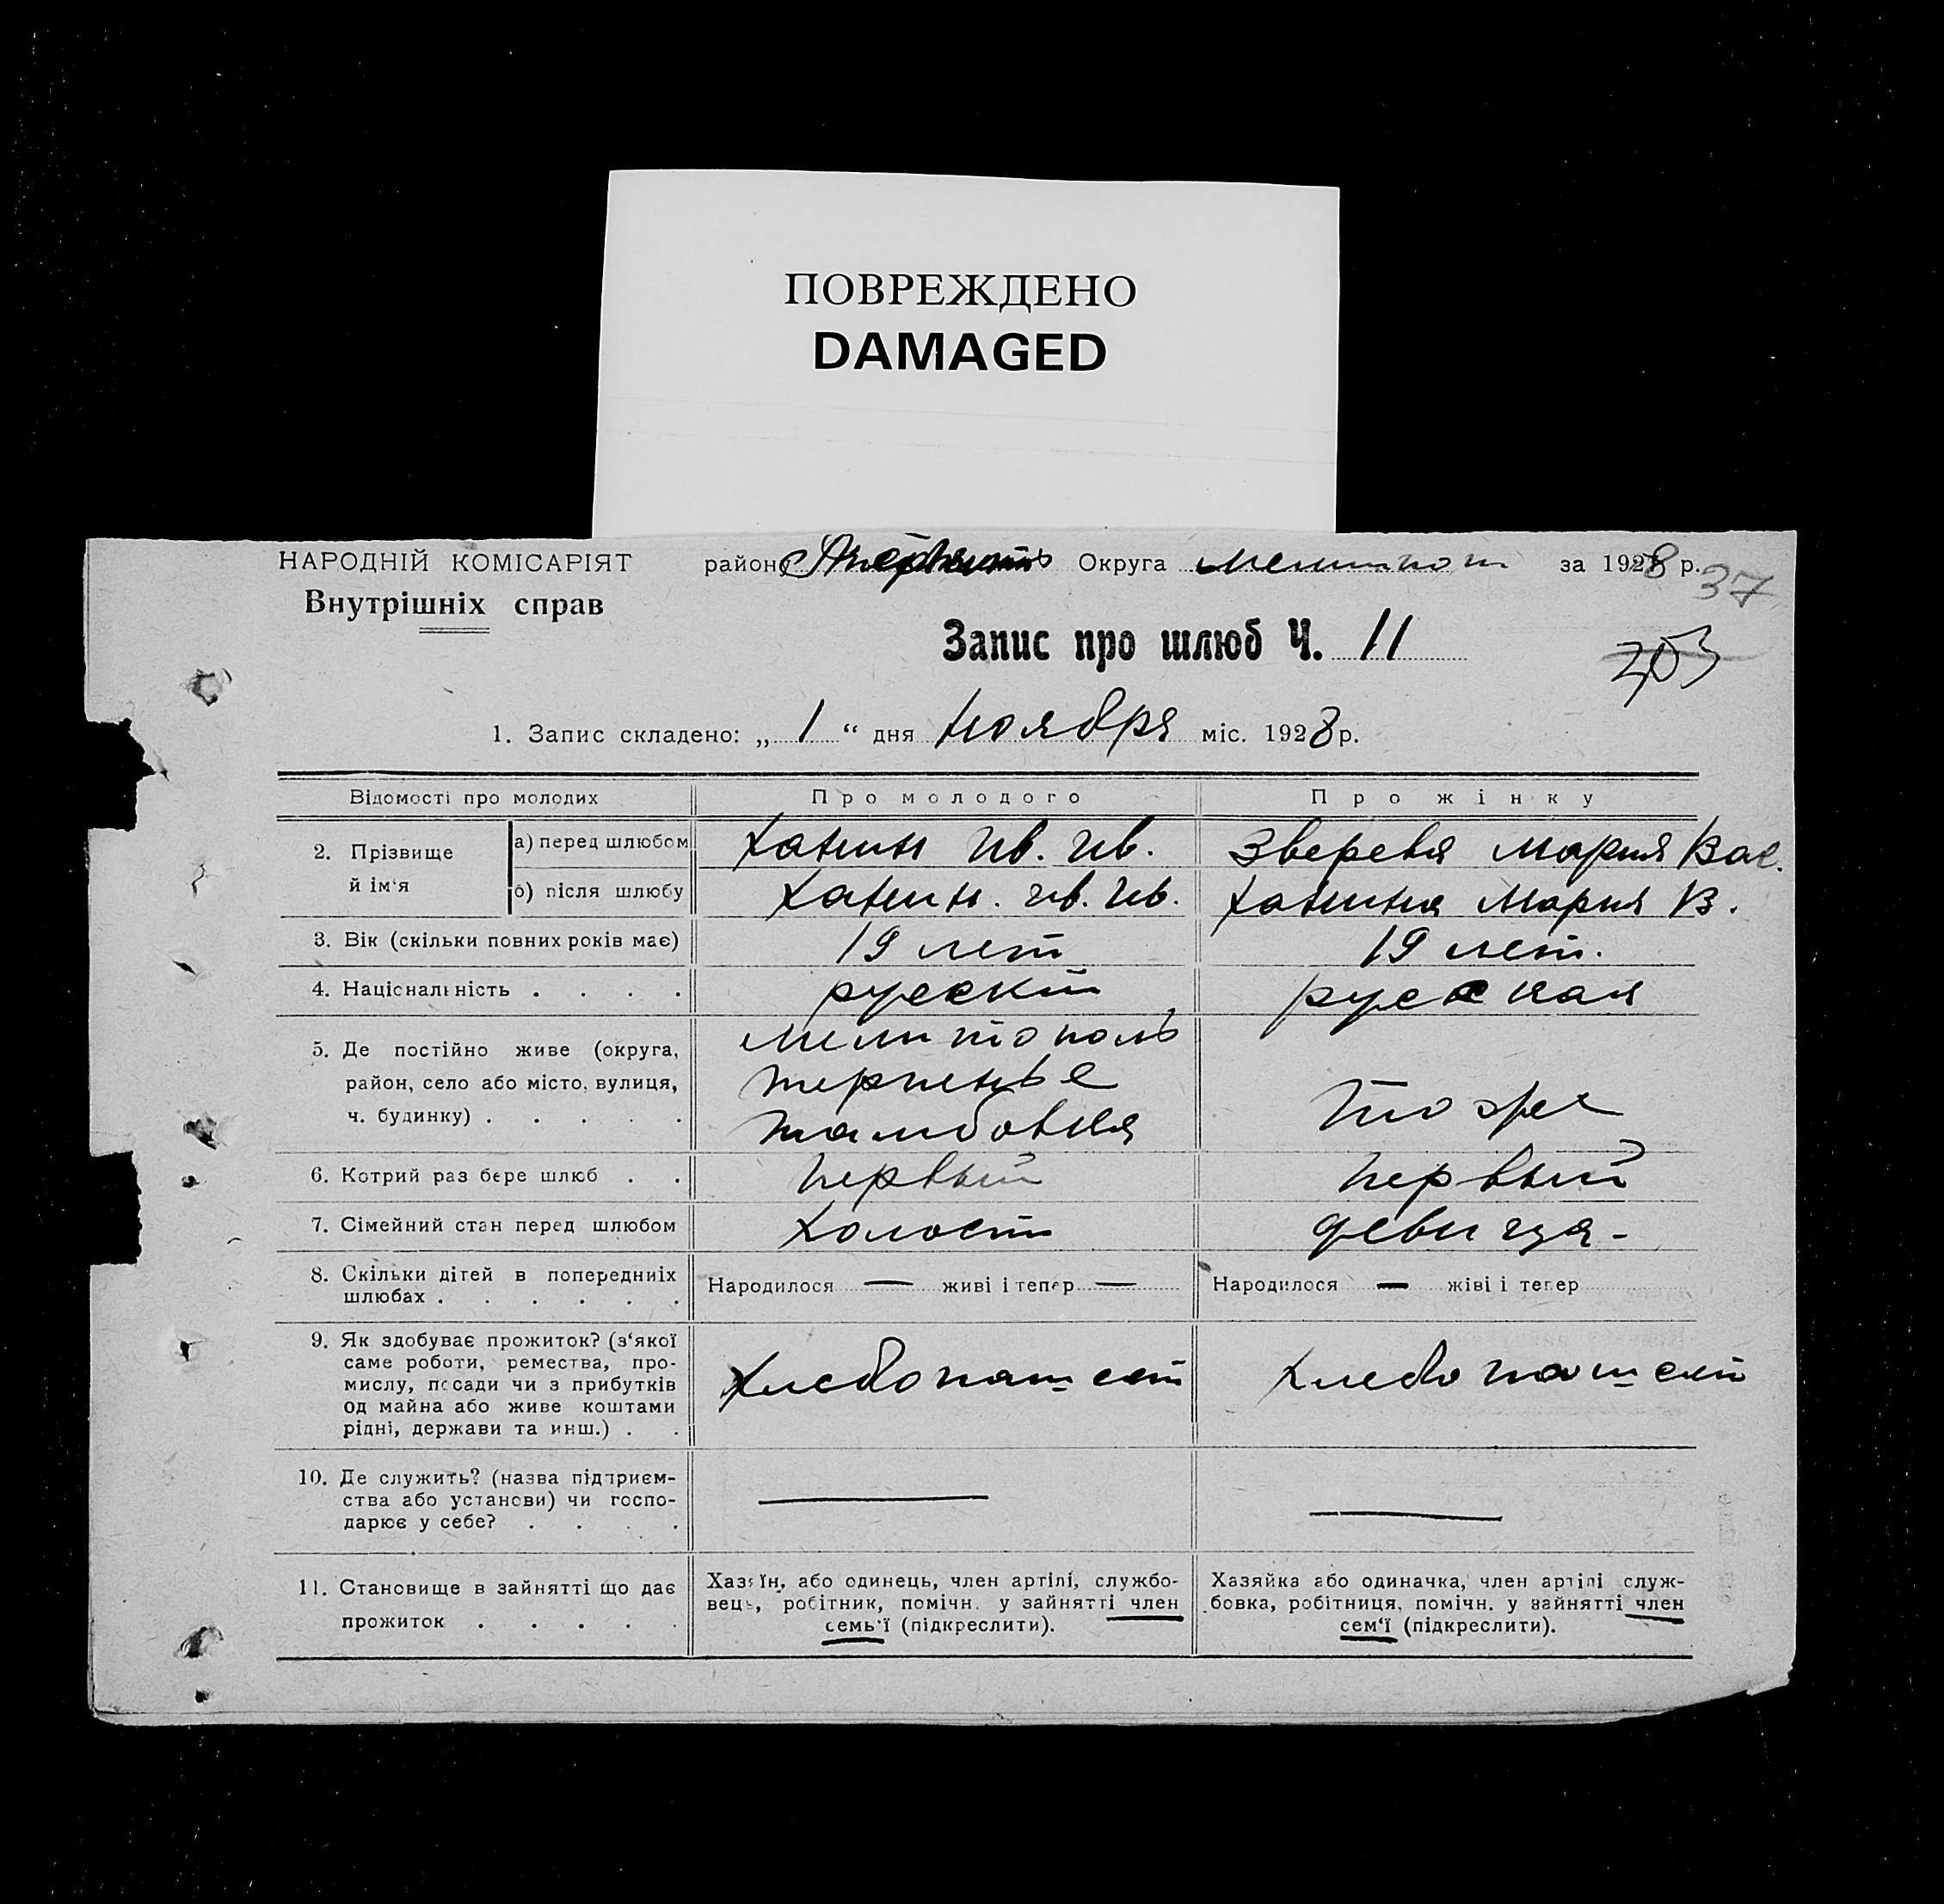 ПОВРЕЖДЕНО
DAMAGED
НАРОДНІЙ КОМІСАРІЯТ
Внутрішніх справ
району Округа Мелитоп за 1928 р.
37
Запис про шлюб Ч. 11
203
1. Запис складено: „ 1 “ дня ноября міс. 1928 р.
Відомості про молодих Про молодого Про жінку
2. Прізвище й ім‘я
а) перед шлюбом Ханин Ив. Ив. Зверева Мария Вас.
б) після шлюбу Ханин. Ив. Ив. Ханина Мария В.
3. Вік (скільки повних років має) 19 лет 19 лет.
4. Національність . . . . русский русская
5. Де постійно живе (округа, Мелитополь
район, село або місто, вулиця, терпенье
ч. будинку) . . . . . тамбовка То же
6. Котрий раз бере шлюб . . Первый Первый
7. Сімейний стан перед шлюбом Холост девица -
8. Скільки дітей в попередниіх
шлюбах . . . . . . Народилося — живі і тепер — Народилося — жіві і тепер
9. Як здобуває прожиток? (з‘якої
саме роботи, ремества, про-
мислу, посади чи з прибутків
од майна або живе коштами
рідні, держави та инш.) . .
Хлебопашест Хлебопашест
10. Де служить? (назва підприєм-
ства або установи) чи госпо-
дарює у себе? . . . .
11. Становище в зайнятті що дає
прожиток . . . . .
Хазяїн, або одинець, член артілі, службо-
вець, робітник, помічн. у зайнятті член
семь‘ї (підкреслити).
Хазяйка або одиначка, член артілі служ-
бовка, робітниця, помічн. у зайнятті член
сем‘ї (підкреслити).